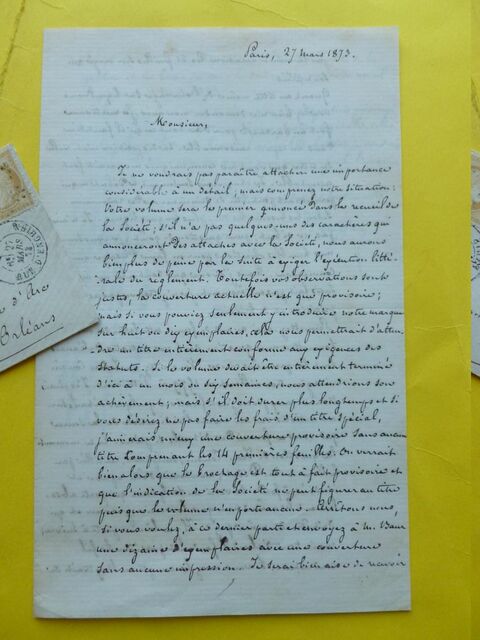 Paris, 27 mars 1873.
Monsieur,
Je ne voudrais pas paraître attacher une importance
considérable à un détail, mais comprenez notre situation:
Votre volume sera le premier annoncé dans le recueil de
la Société; s'il n'a pas quelques-uns des caractères qui
annonceront des attaches avec la Société, nous aurons
bien plus de peine par la suite à exiger l'exécution litté-
rale du règlement. Toutefois vos observations sont
justes, la couverture actuelle n'est que provisoire;
mais si vous pouviez seulement y introduire notre marque
sur huit ou dix exemplaires, cela nous permettrait d'atten-
dre un titre entièrement conforme aux exigences des
Statuts. Si le volume devait être entièrement terminé
d'ici à un mois ou six semaines, nous attendrions son
achèvement; mais s'il doit durer plus longtemps et si
vous désirez ne pas faire les frais d'un titre spécial,
j'aimerais mieux une couverture provisoire sans aucun
titre comprenant les 14 premières feuilles. On verrait
bien alors que le brochage est tout à fait provisoire et
que l'indication de la Société ne peut figurer au titre
puis que le volume n'en porte aucun. Arrêtons nous,
si vous voulez, à ce dernier parti et envoyez à M.
une dizaine d'exemplaires avec une couverture
sans aucune impression. Je serai bien aise de recevoir
27
MARS
d'Arc
Orléans